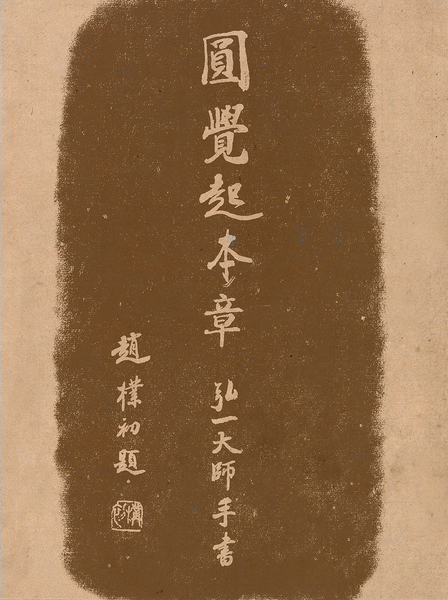 圓覺起本章
弘一大師手書
趙樸初題